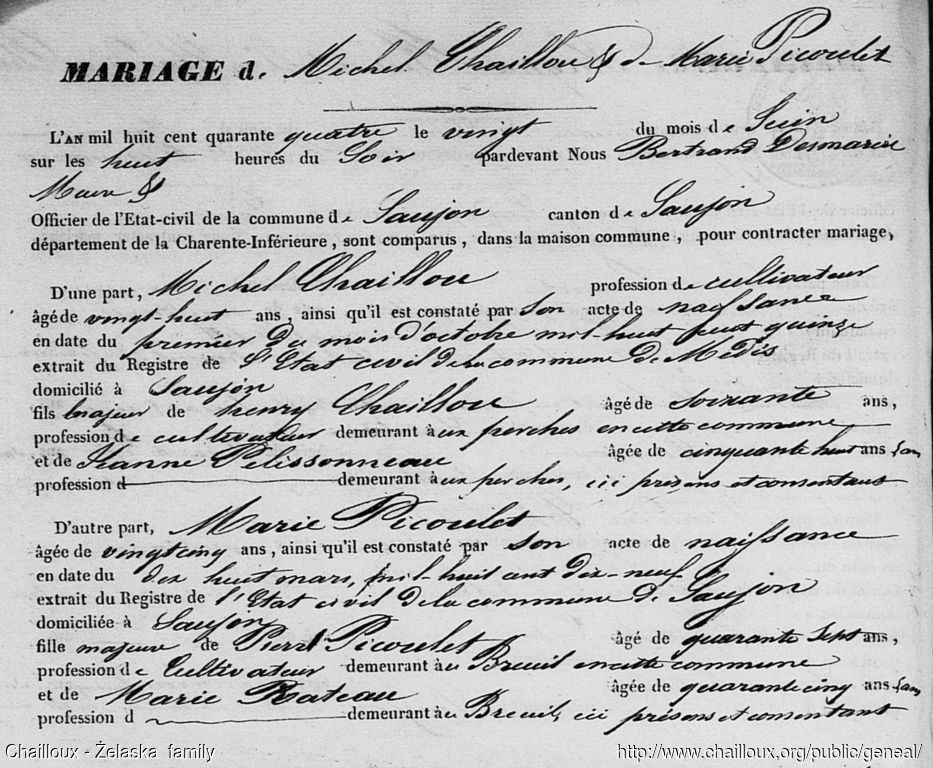 MARIAGE de Michel Chaillou & de Marie Picoulet
L'AN mil huit cent quarante quatre le vingt du mois de Juin
sur les huit heures du Soir pardevant Nous Bertrand Desmarie
Maire &
Officier de l'Etat-civil de la commune de Saujon canton de Saujon
département de la Charente-Inférieure, sont comparus, dans la maison commune, pour contracter mariage,
D'une part, Michel Chaillou profession de cultivateur
âgé de vingt-huit ans, ainsi qu'il est constaté par son acte de naissance
en date du premier du mois d'octobre mil-huit cent quinze
extrait du Registre de l'Etat civil de la commune de Medis
domicilié à Saujon
fils majeur de henry Chaillou âgé de soixante ans,
profession de cultivateur demeurant à aux perches en cette commune
et de Jeanne Pelissonneau âgée de cinquante huit ans san
profession d demeurant à aux perches, ici présens et consentans
D'autre part, Marie Picoulet
âgée de vingt cinq ans, ainsi qu'il est constaté par son acte de naissance
en date du dix huit mars, mil-huit cent dix-neuf
extrait du Registre de l'Etat civil de la commune de Saujon
domiciliée à Saujon
fille majeure de Pierre Picoulet âgé de quarante sept ans,
profession de Cultivateur demeurant à au Breuil en cette commune
et de Marie Rateau âgée de quarante cinq ans san
profession d demeurant à au Breuil, ici présens et consentant
Chailloux - Żelaska family http://www.chailloux.org/public/geneal/